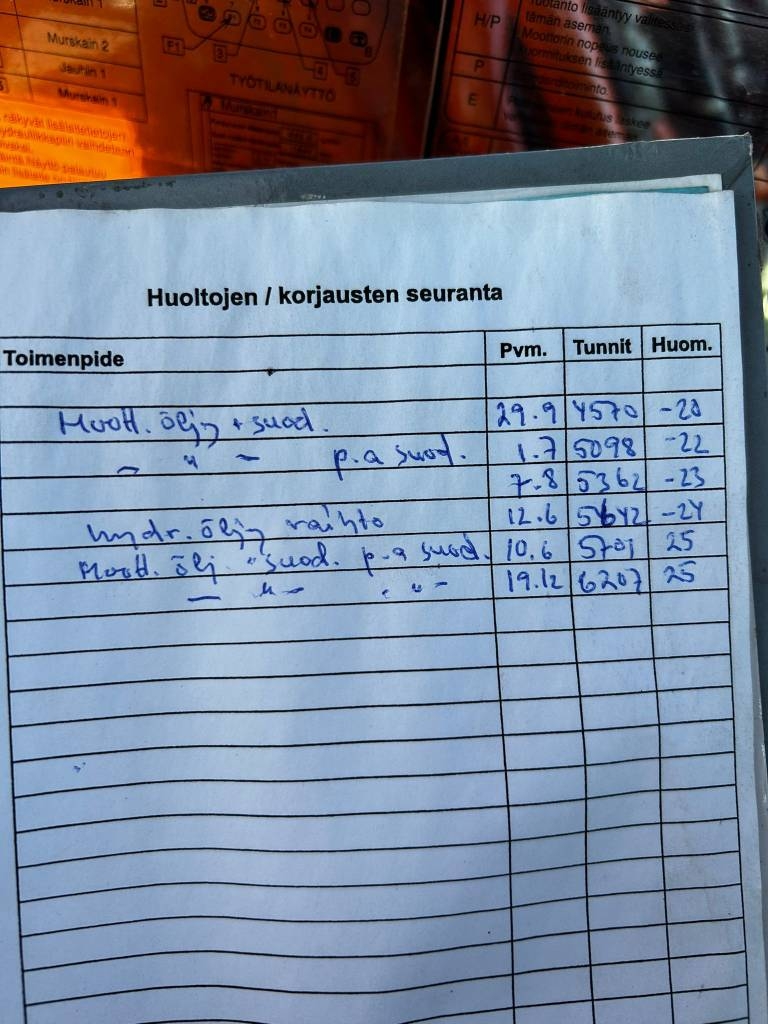 Murskain 1
Murskain 2
Jauhin 1
Murskain 1
F1
3
4
5
TYÖTILANÄYTTÖ
Murskaind
H/P
Tuotanto lisääntyy valitessasi
tämän aseman.
Moottorin nopeus nousee
kuormituksen lisääntyessä
P
E
Huoltojen / korjausten seuranta
Toimenpide Pvm. Tunnit Huom.
Moott. öljy + suod. 29.9 4570 -20
— " — p.a suod. 1.7 5098 -22
7.8 5362 -23
hydr. öljy vaihto 12.6 5642 -24
Moott. ölj. + suod. p.a suod. 10.6 5701 25
— " — - " - 19.12 6207 25